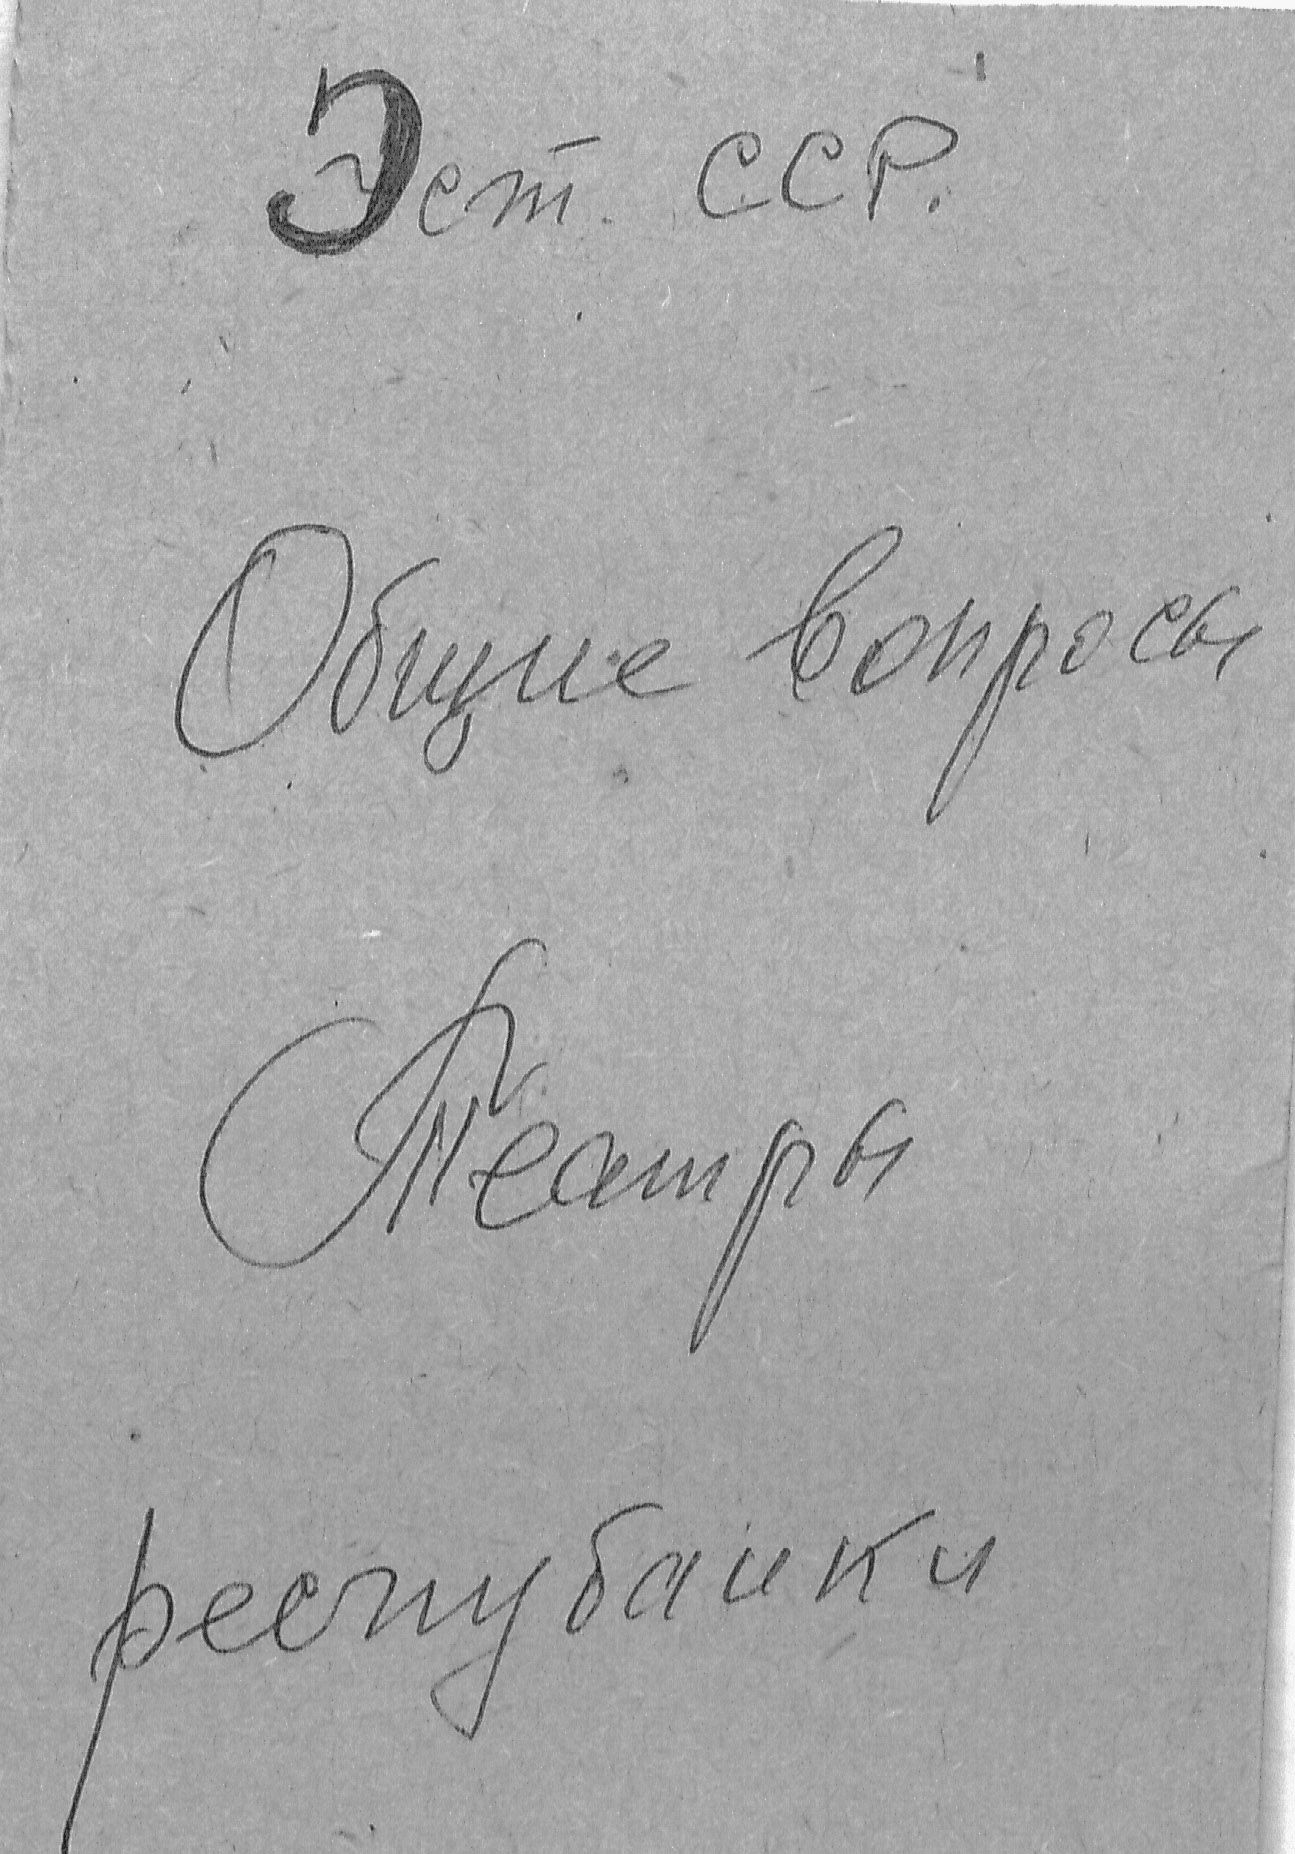 Эст. ССР.
Общие вопросы
Театры
республики